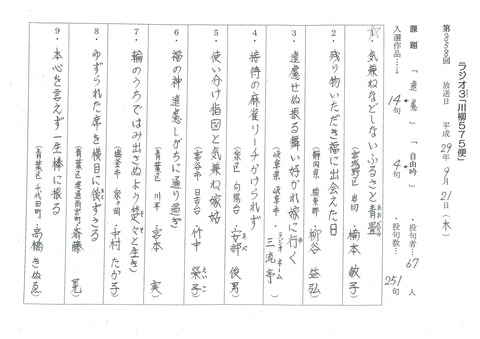 ラジオ3「川柳575便」
第858回 放送日 平成29年9月21日(木)
課題「遠慮」「自由吟」・投句者…67人
入選作品……14句 4句 ・投句数…251句
1・気兼ねなどしないふるさと青畳
(宮城野区 岩切 楠本敏子)
2・残り物いただき福に出会えた日
(静岡県 駿東郡 柳谷益弘)
3・遠慮せぬ振る舞い好かれ嫁に行く
(岐阜県 岐阜市・ラジオネーム 三流亭)
4・接待の麻雀リーチかけられず
(泉区 向陽台 安部俊男)
5・使い分け指図と気兼ね嫁姑
(富谷市 日吉台 竹中榮子)
6・福の神遠慮しがちに通り過ぎ
(青葉区 川平 宮本実)
7・輪のうちではみ出さぬよう使々と生き
(塩釜市 泉ヶ岡 木村たか子)
8・ゆずられた席を横目に後ずさる
(青葉区 斎藤晃)
9・本心を言えず一生棒に振る
(青葉区 千代田町 高橋きぬゑ)